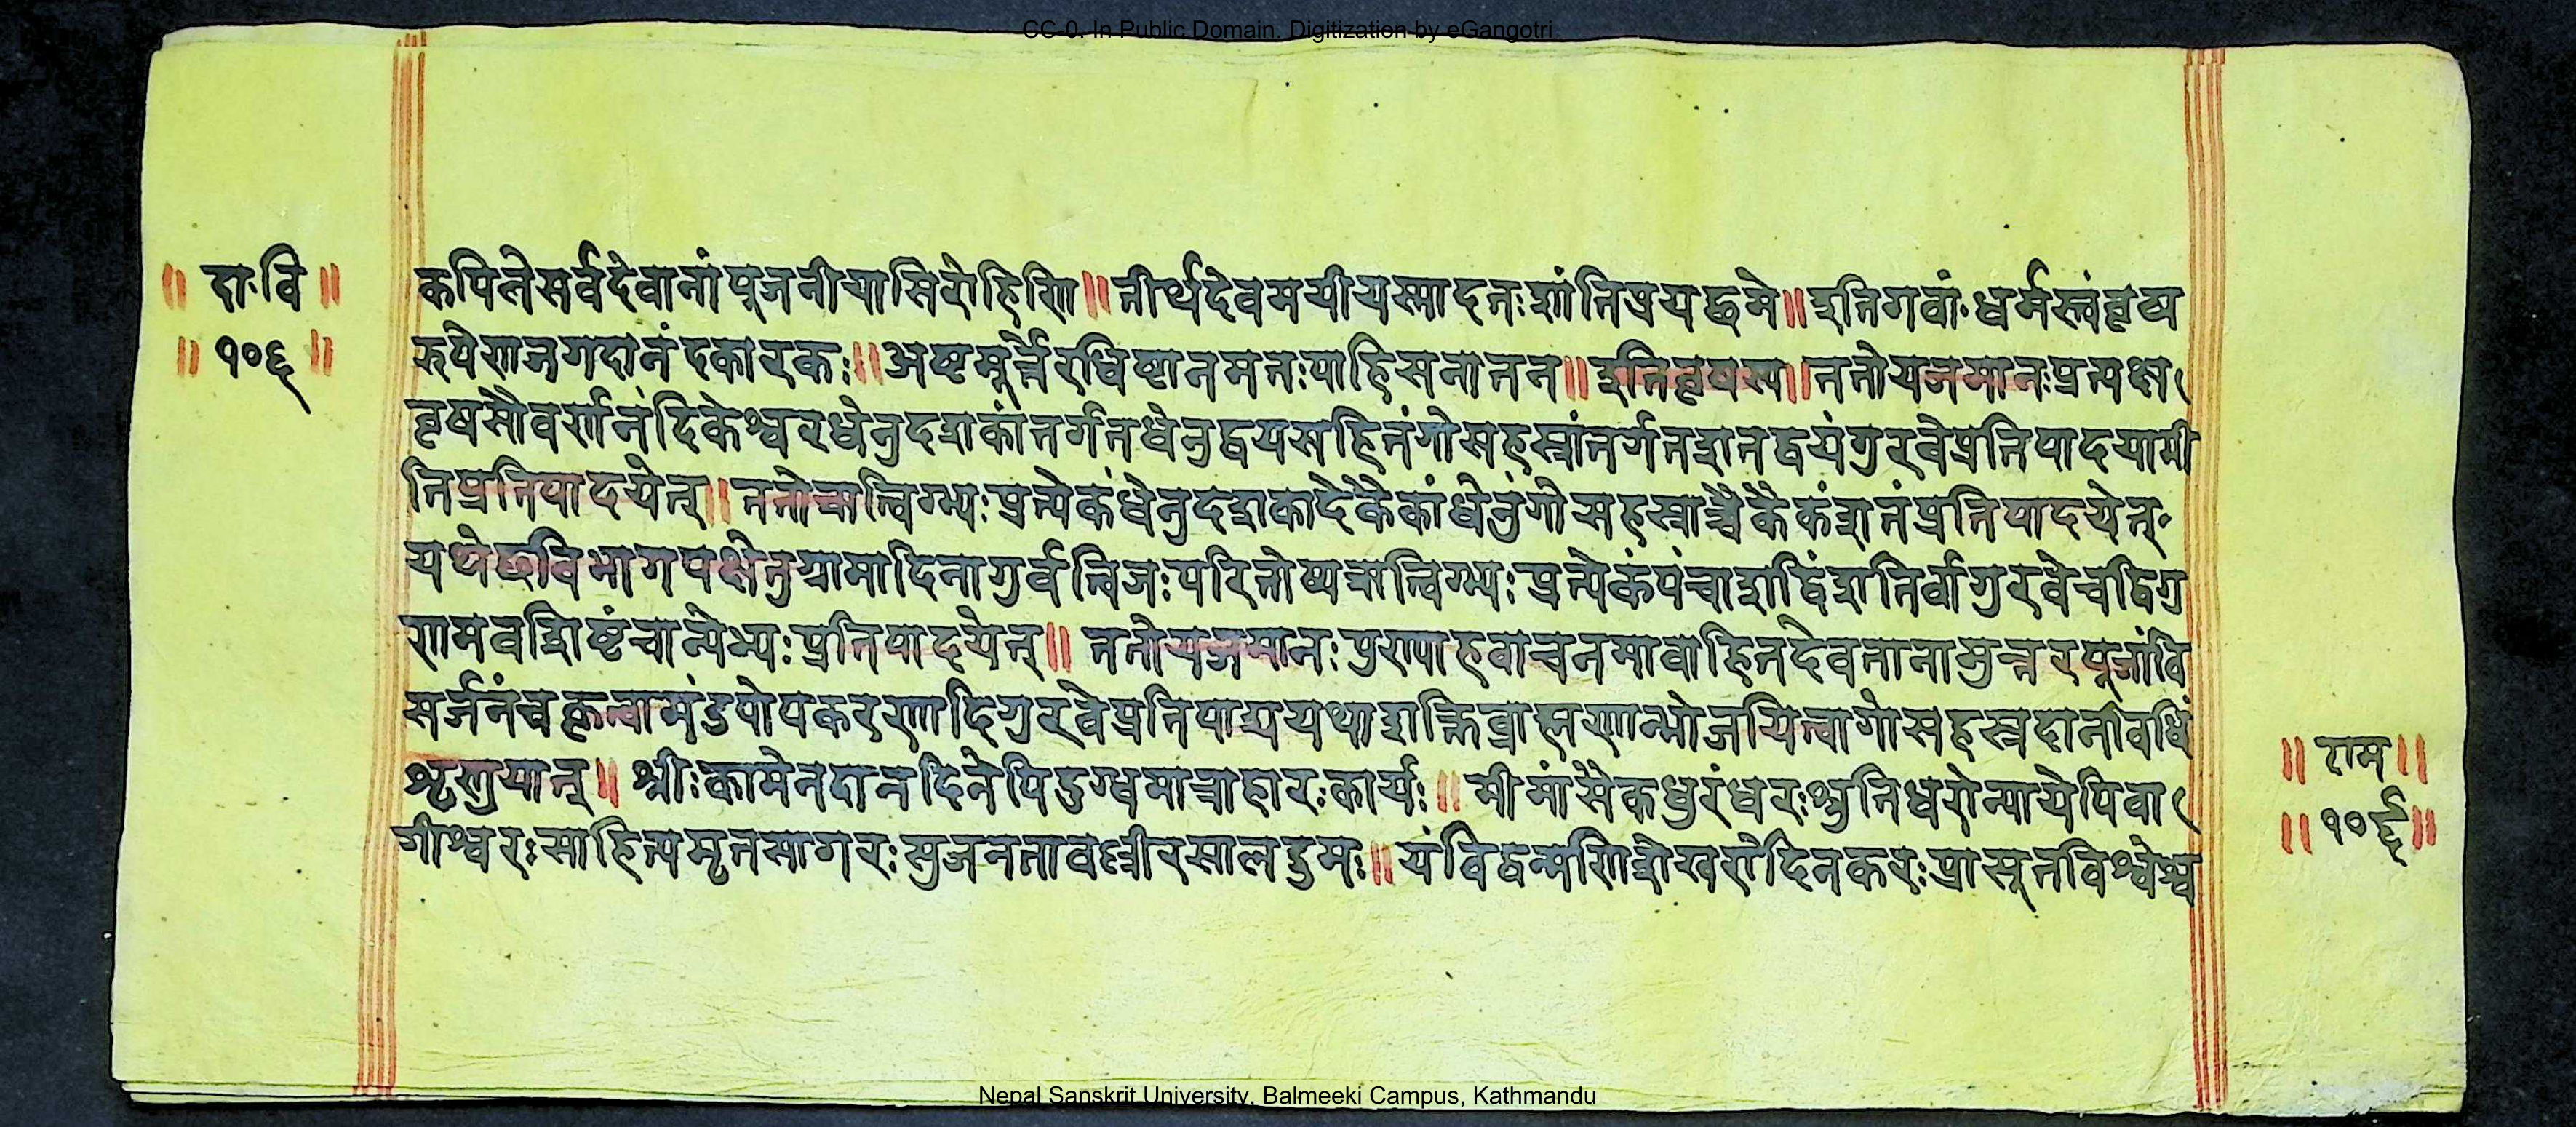 CC-0. In Public Domain. Digitization by eGangotri
॥ दा॰वि ॥
॥ १०६ ॥
कपिलेसर्वदेवानांपूजनीयासिरोहिणि॥तीर्थदेवमयीयस्मादतःशांतिप्रयछमे॥इतिगवां॰धर्मस्त्वंवृष्य
रुपेणजगदानंदकारकः॥अष्टमूर्त्तेरधिष्टानमतःपाहिसनातन॥इतिवृषस्य॥ततोयजमानःप्रत्यक्ष
वृषसौवर्णनंदिकेश्वरधेनुदशकांतर्गतधेनुद्वयसहितंगोसहस्रांतर्गतशतद्वयंगुरवेप्रतिपादयामी
तिप्रतिपादयेत्॥ततोऋत्विग्भ्यःप्रत्येकंधेनुदशकादेकैकांधेनुंगोसहस्राच्चैकैकंशतंप्रतिपादयेत्
यथेछविभागपक्षेतुग्रामादिनागुर्वत्विजःपरितोष्यऋत्विग्भ्यःप्रत्येकंपंचाशद्विंशतिर्वागुरवेचद्विगु
णमवशिष्टंचान्येभ्यःप्रतिपादयेत्॥ ततोयजमानःपुण्याहवाचनमावाहितदेवतानामुत्तरपूजांवि
सर्जनंचकृत्वामंडपोपकरणादिगुरवेप्रतिपाद्ययथाशक्तिब्राह्मणान्भोजयित्वागोसहस्रदानविधिं
शृणुयात्॥ श्रीःकामेनदानदिनेपिदुग्धमात्राहारःकार्यः॥ मीमांसैकधुरंधरःश्रुतिधरोन्यायेपिवा
गीश्वरःसाहित्यमृतसागरःसुजनतावल्लीरसालद्रुमः॥ यंविद्वन्मणिशेखरोदिनकरःप्रासूतविश्वेश्व
॥ राम ॥
॥ १०६ ॥
Nepal Sanskrit University, Balmeeki Campus, Kathmandu